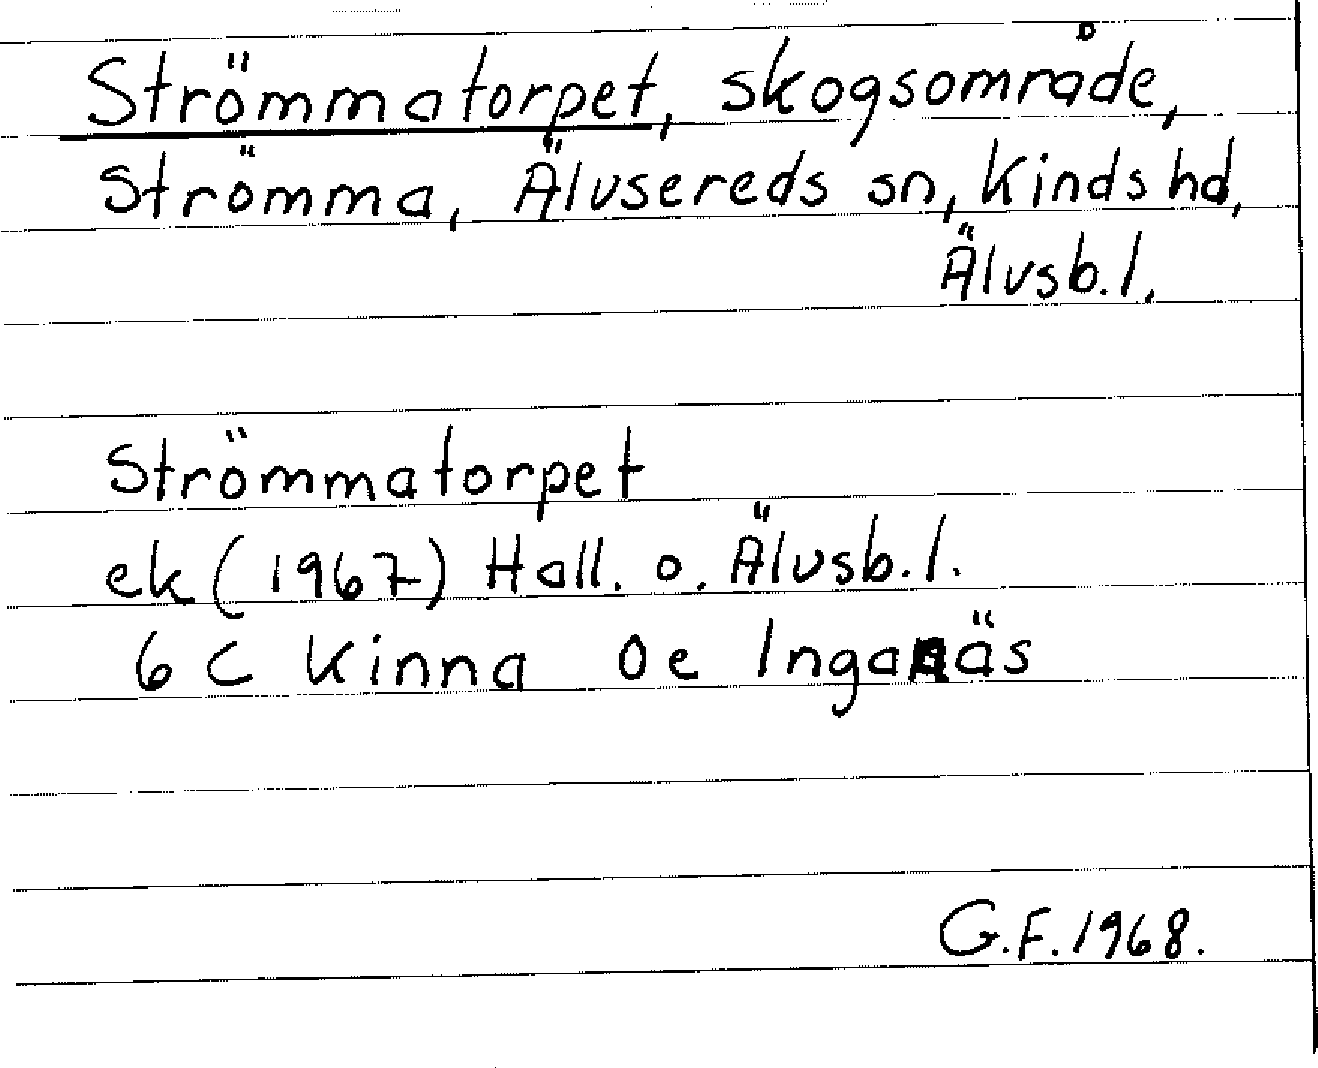 Strömmatorpet, skogsområde,
Strömma, Älvsereds sn, Kinds hd,
Älvsb. l.
Strömmatorpet
ek (1967) Hall. o. Älvsb. l.
6 C Kinna 0e Inganäs
G.F. 1968.